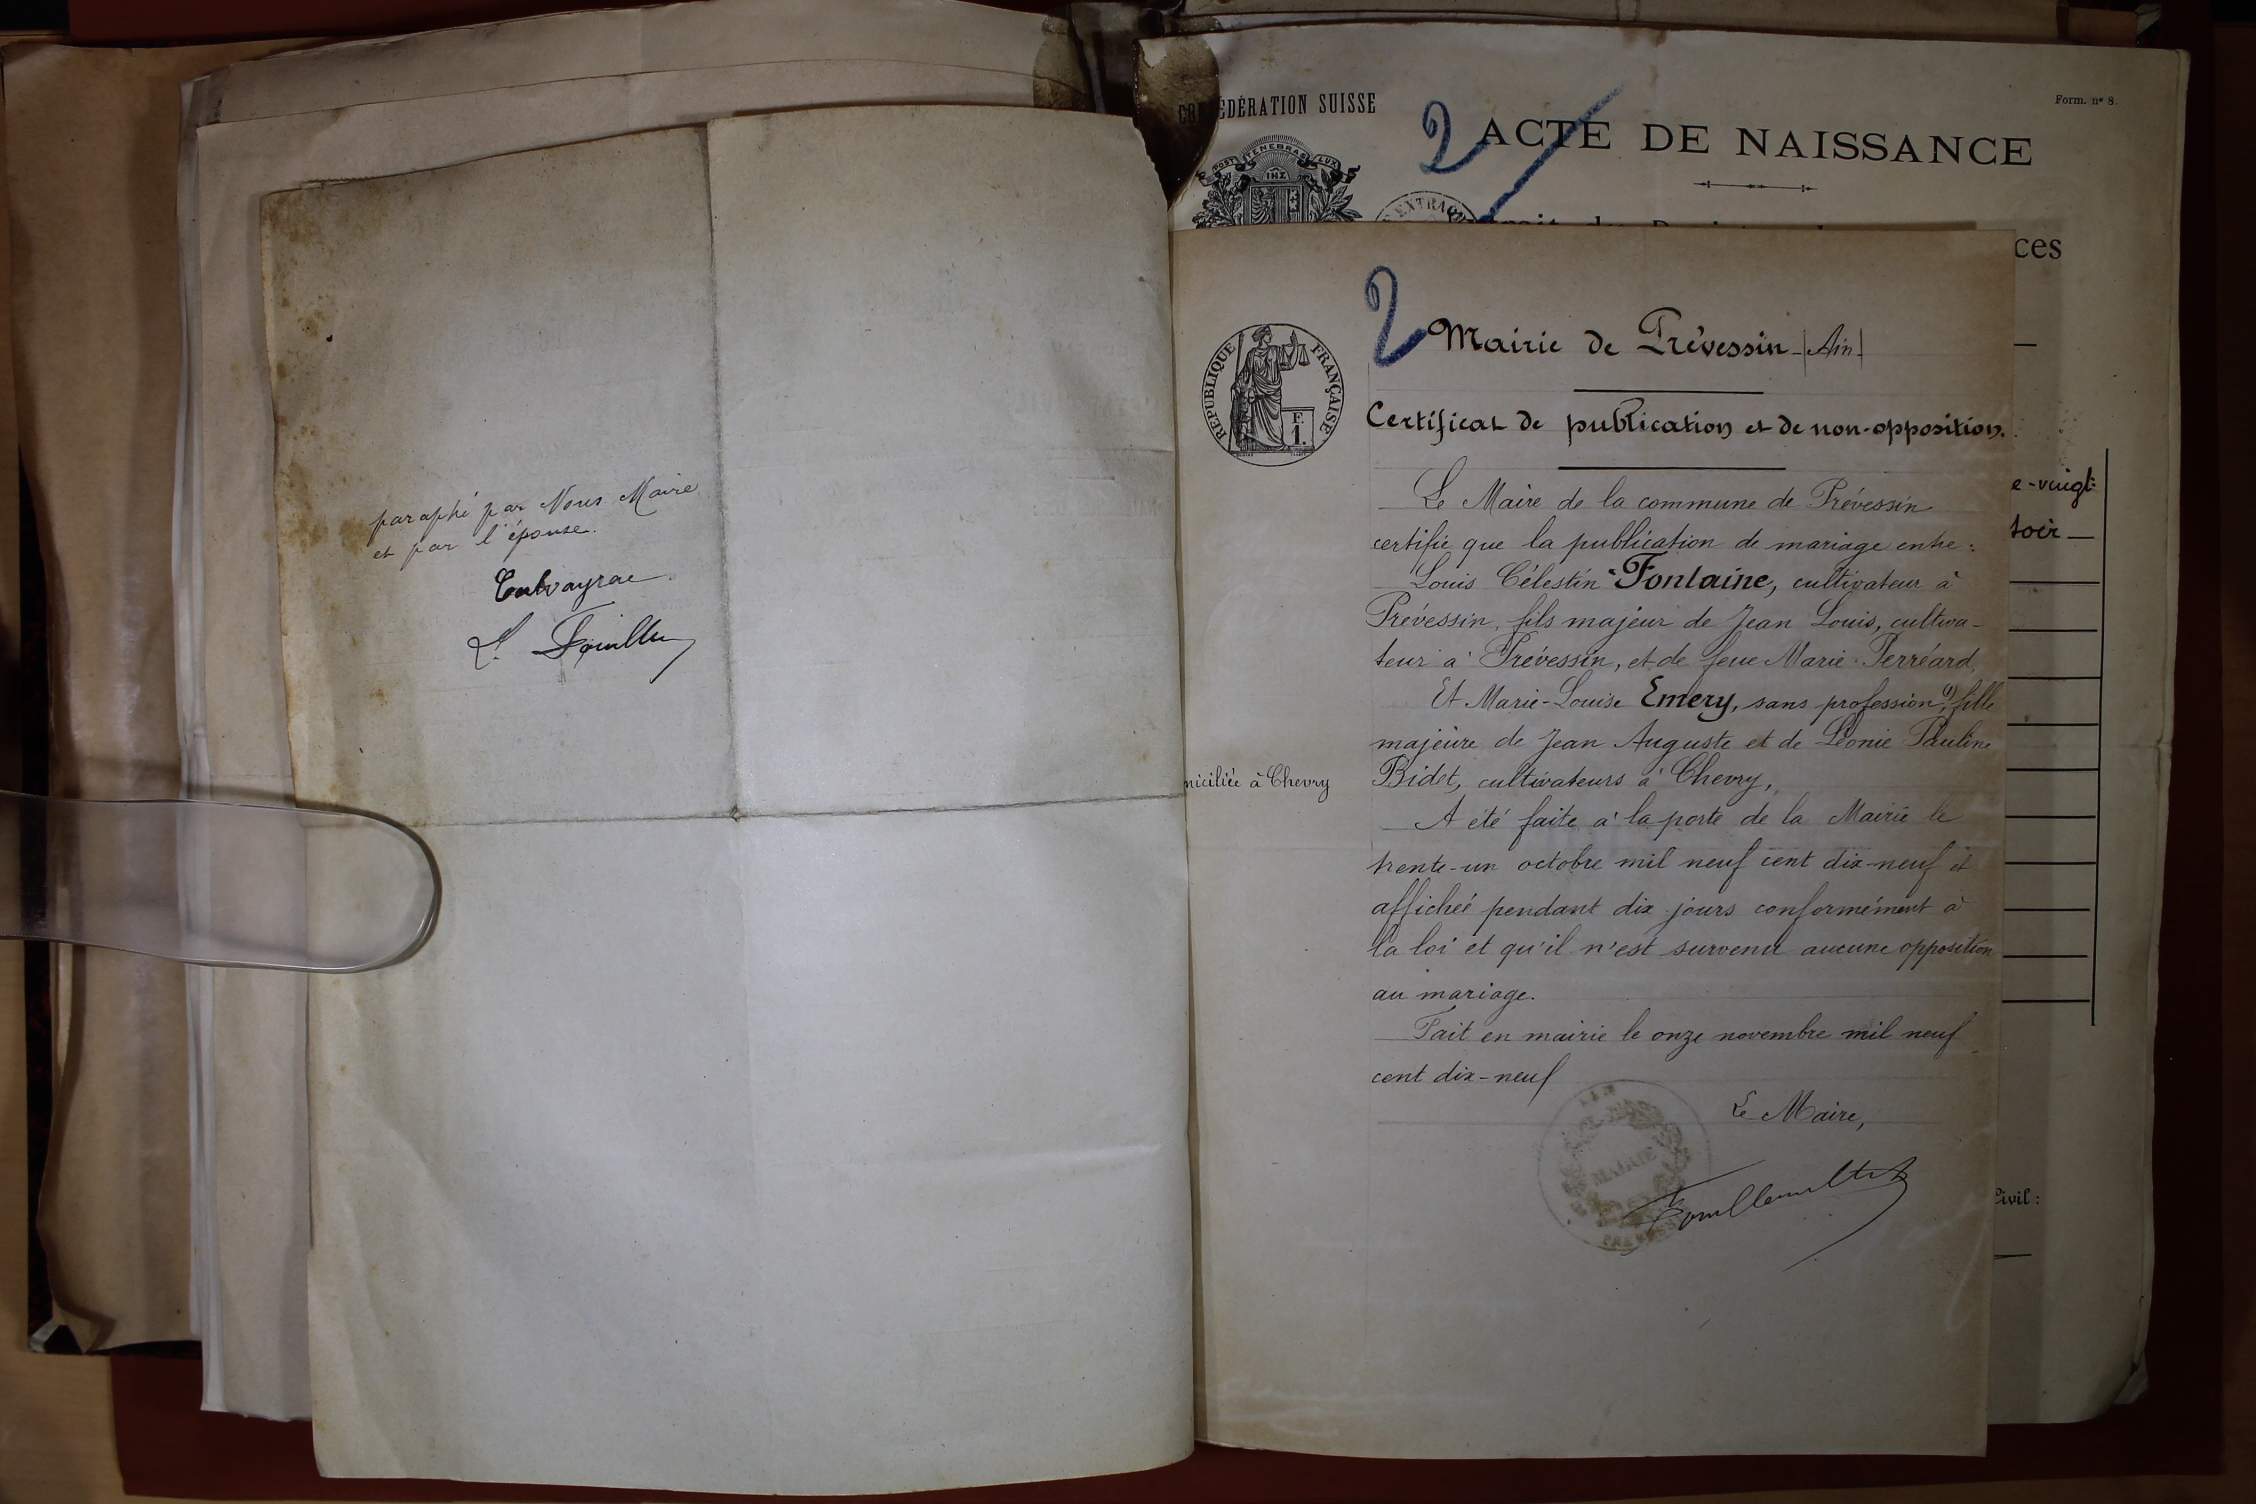 paraphé par Nous Maire
et par l'épouse.
CONFÉDÉRATION SUISSE
Form. nº 8.
2
ACTE DE NAISSANCE
POST TENEBRAS LUX
ces
e-vingt-
soir
Civil :
2
RÉPUBLIQUE FRANÇAISE
F.
1.
Mairie de Prévessin (Ain)
Certificat de publication et de non-opposition.
Le Maire de la commune de Prévessin
certifie que la publication de mariage entre :
Louis Célestin Fontaine, cultivateur à
Prévessin, fils majeur de Jean Louis, cultiva-
teur à Prévessin, et de feue Marie Perréard,
Et Marie-Louise Emery, sans profession, (1) fille
majeure de Jean Auguste et de Léonie Pauline
niciliée à Chevry
Bidet, cultivateurs à Chevry,
A été faite à la porte de la Mairie le
trente-un octobre mil neuf cent dix-neuf et
affichée pendant dix jours conformément à
la loi et qu'il n'est survenu aucune opposition
au mariage.
Fait en mairie le onze novembre mil neuf
cent dix-neuf
Le Maire,
MAIRIE